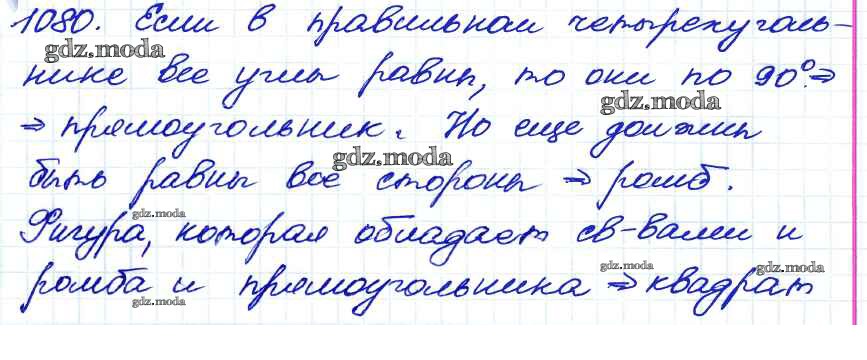 1080. Если в правильном четырехуголь-
нике все углы равны, то они по 90°.⇒
⇒ прямоугольник. Но еще должны
быть равны все стороны ⇒ ромб.
Фигура, которая обладает св-вами и
ромба и прямоугольника ⇒ квадрат
gdz.moda
gdz.moda
gdz.moda
gdz.moda
gdz.moda
gdz.moda
gdz.moda